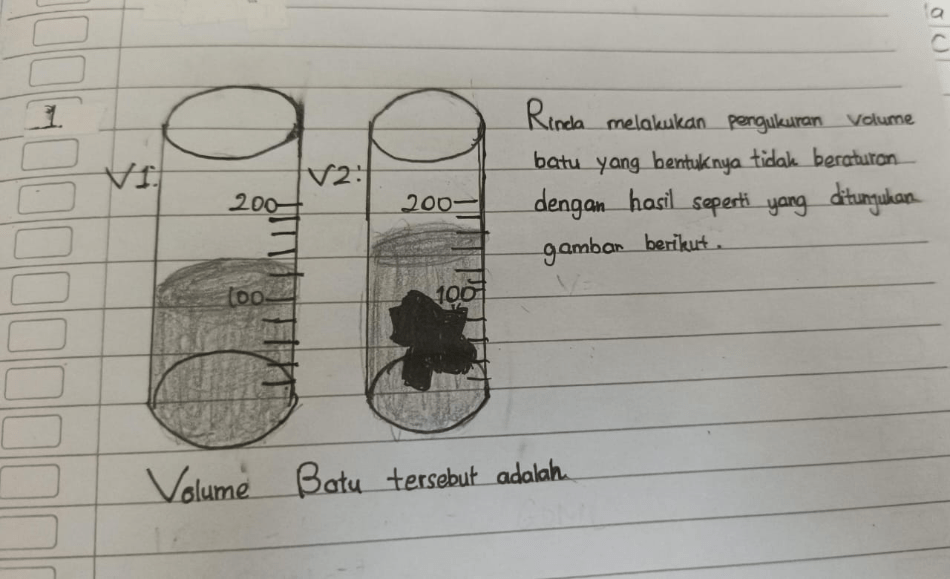 1
Rinda melakukan pengukuran volume
batu yang bentuknya tidak beraturan
dengan hasil seperti yang ditunjukan
gambar berikut.
V1:
200
100
V2:
200
100
Volume Batu tersebut adalah